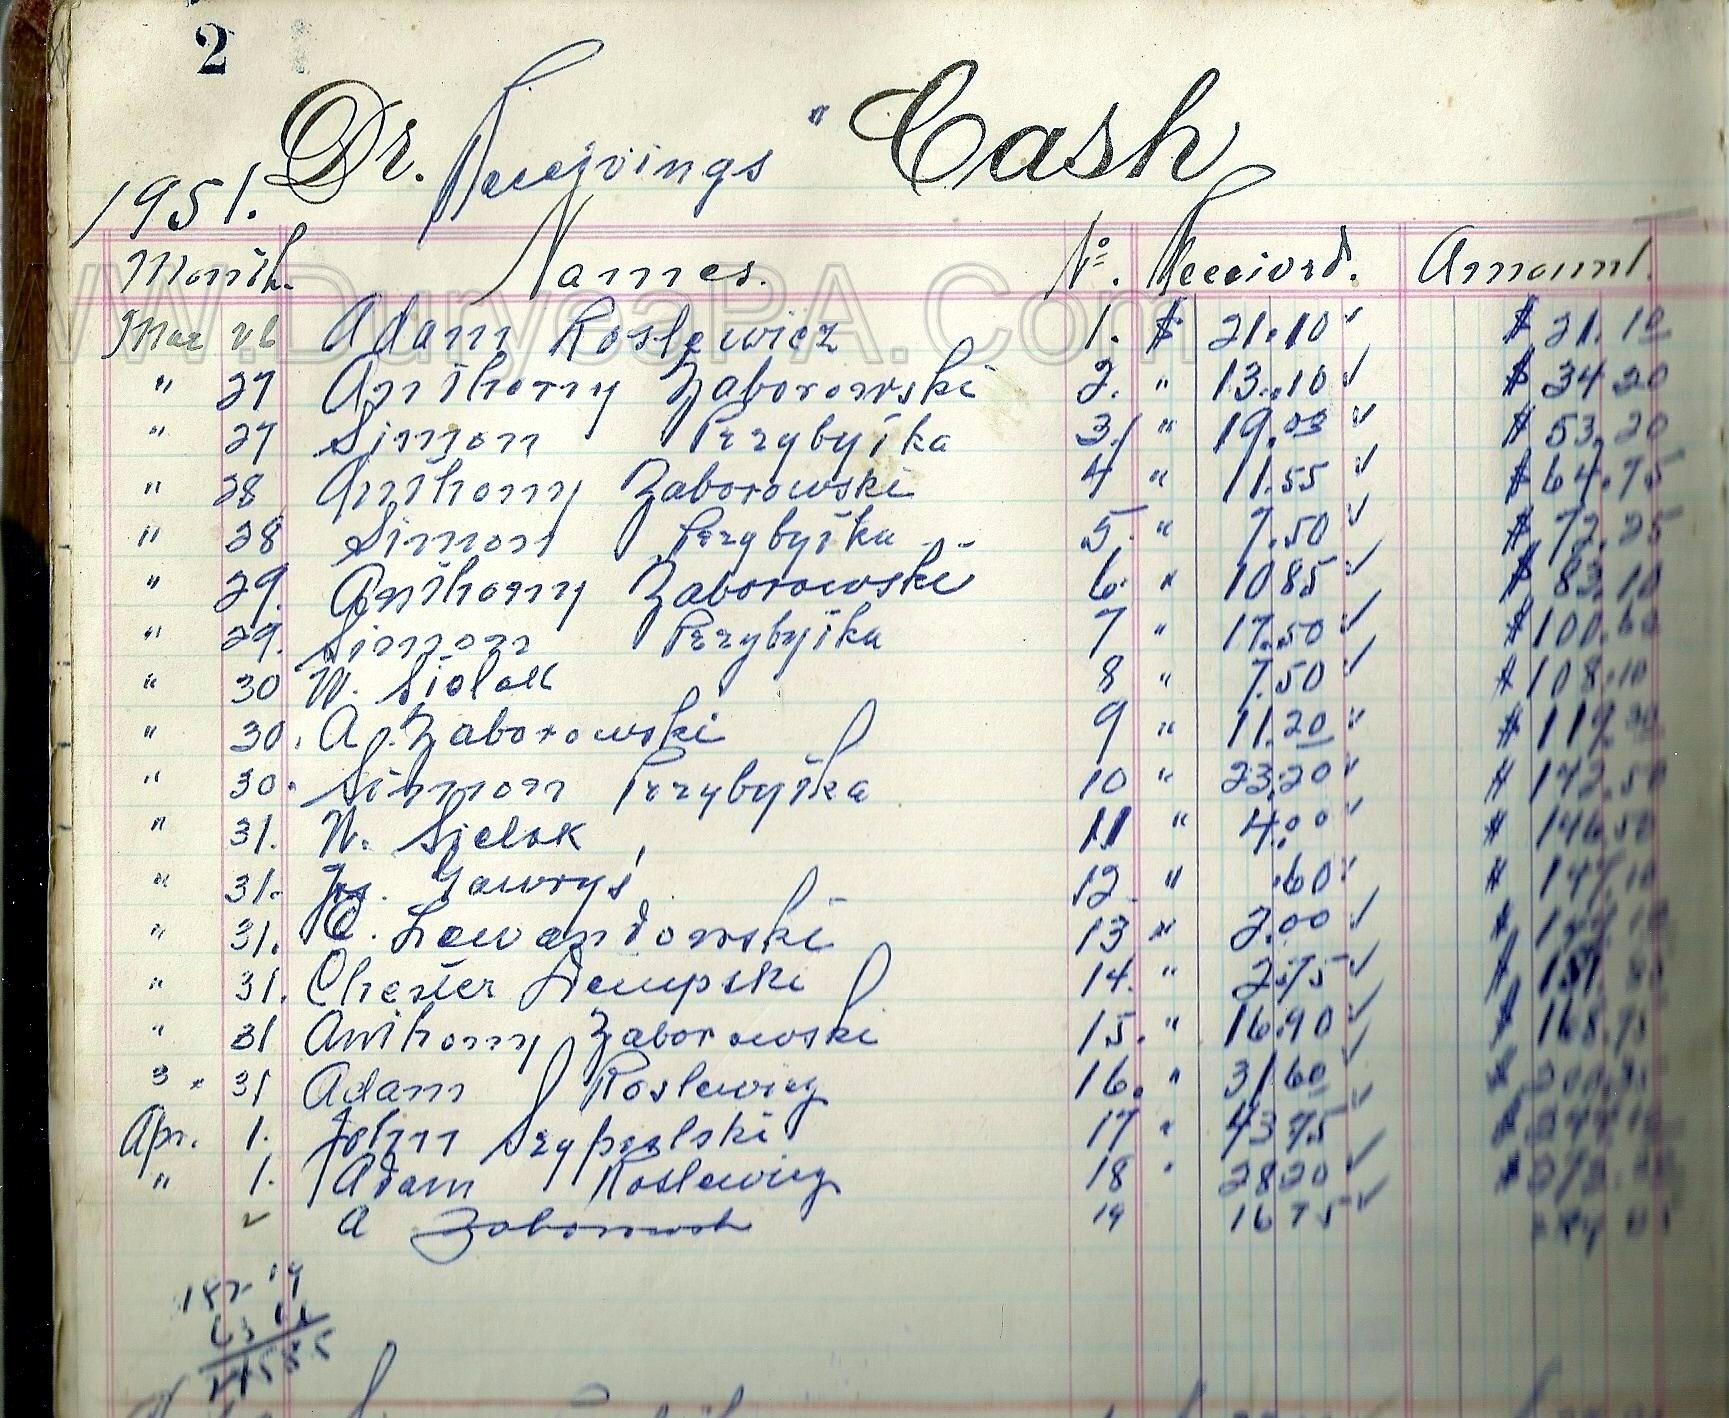 2
Dr. Receivings " Cash
1951.
Month. Names. No. Received. Amount.
Mar 26 Adam Roslewicz 1. $ 21.10 ✓ $ 21.10
" 27 Anthony Zaborowski 2. " 13.10 ✓ $ 34 20
" 27 Simon Przybytka 3. " 19.00 ✓ $ 53.20
" 28 Anthony Zaborowski 4 " 11.55 ✓ $ 64.75
" 28 Simon Przybytka 5. " 7.50 ✓ $ 72.25
" 29. Anthony Zaborowski 6. " 10 85 ✓ $ 83.10
" 29. Simon Przybytka 7 " 17.50 ✓ $ 100.60
" 30 W. Sielak 8 " 7.50 ✓ $ 108.10
" 30. A. Zaborowski 9 " 11.20 ✓ $ 119.30
" 30. Simon Przybytka 10 " 23.20 ✓ $ 142.50
" 31. W. Sielak 11 " 4.00 ✓ $ 146.50
" 31. Gawrys 12 " .60 ✓ $ 147.10
" 31. C. Lewandowski 13 " 2.00 ✓ $
" 31. Chester Dempski 14. " 2.75 ✓ $ 151.85
" 31 Anthony Zaborowski 15. " 16.90 ✓ $ 168.75
3 " 31 Adam Roslewicz 16. " 31 60 ✓ $ 200.35
Apr. 1. John 17 " 43 75 ✓ $ 244.10
" 1. Adam Roslewicz 18 " 28 20 ✓ $ 272.30
2 A Zaborowski 19 16 75 ✓
www.DuryeaPA.Com